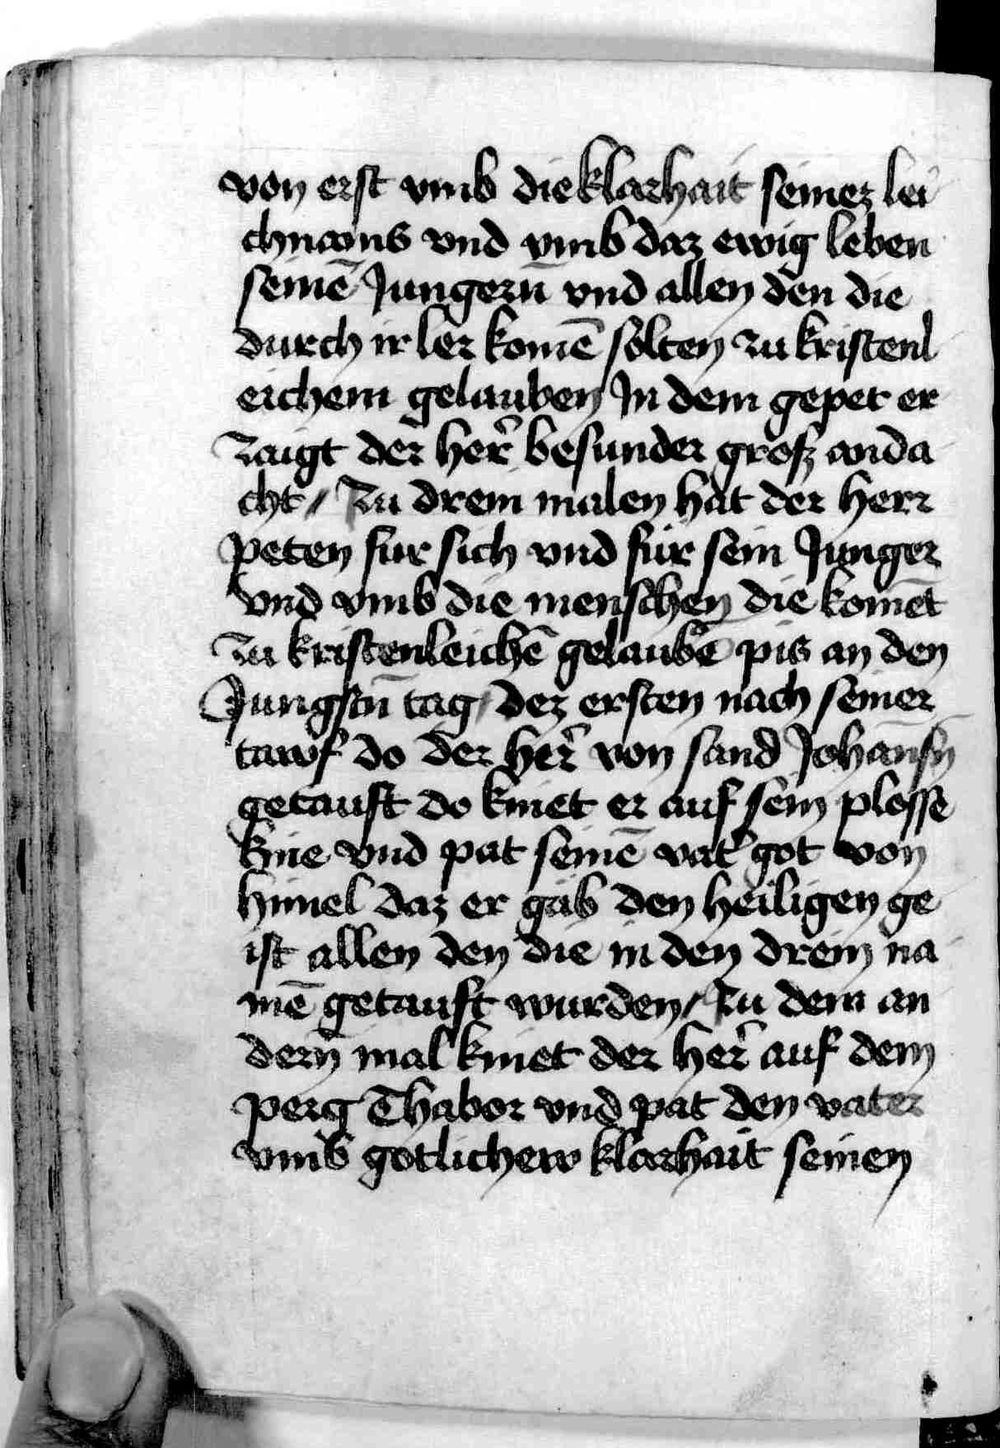 von erst vmb die klarhait seinez lei
chnams vnd vmb daz ewig leben
seinē Jungerń vnd allen den die
durch ir ler komē solten zu kristenl
eichem gelauben In dem gepet er
zaigt der her̃ besunder grosz anda
cht // Zu drein malen hat der herr
peten fur sich vnd fur sein Junger
vnd vmb die menschen die komēt
zu kristenleichē gelaubē pis an den
Jungstn̄ tag / dez ersten nach seiner
tawf do der her̃ von sand Johansn̄
getauft do kniet er auf sein plosse
knie vnd pat seinē vat᷑ got von
himel daz er gäb den heiligen ge
ist allen den die in den drein na
mē getauft wurden / Zu dem an
dern mal kniet der her̃ auf dem
perg Thabor vnd pat den vater
vmb gotlichew klarhait seinen